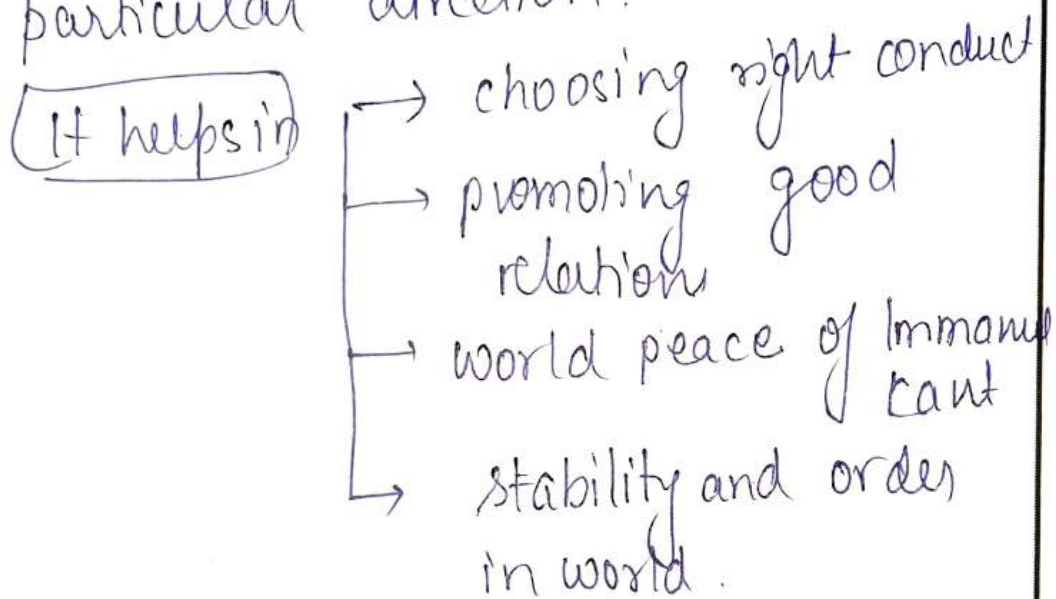 particular direction.
It helps in
→ choosing right conduct
→ promoting good
relations
→ world peace of Immanuel
Kant
→ stability and order
in world.